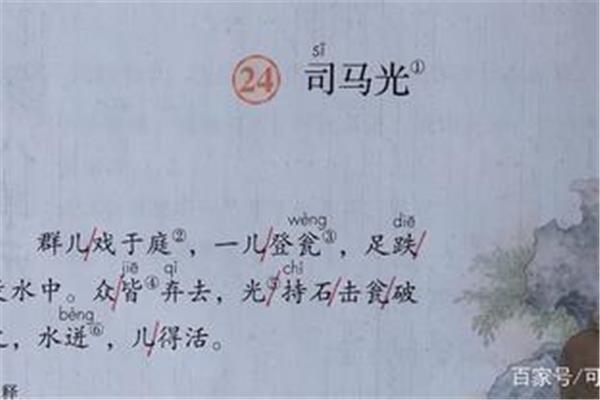 sī
24 司马光①
wèng diē
群儿戏于庭②，一儿登瓮③，足跌
jiē qì chí
水中。众皆④弃去，光⑤持石击瓮破
bèng
，水迸⑥，儿得活。
释
百家号/可